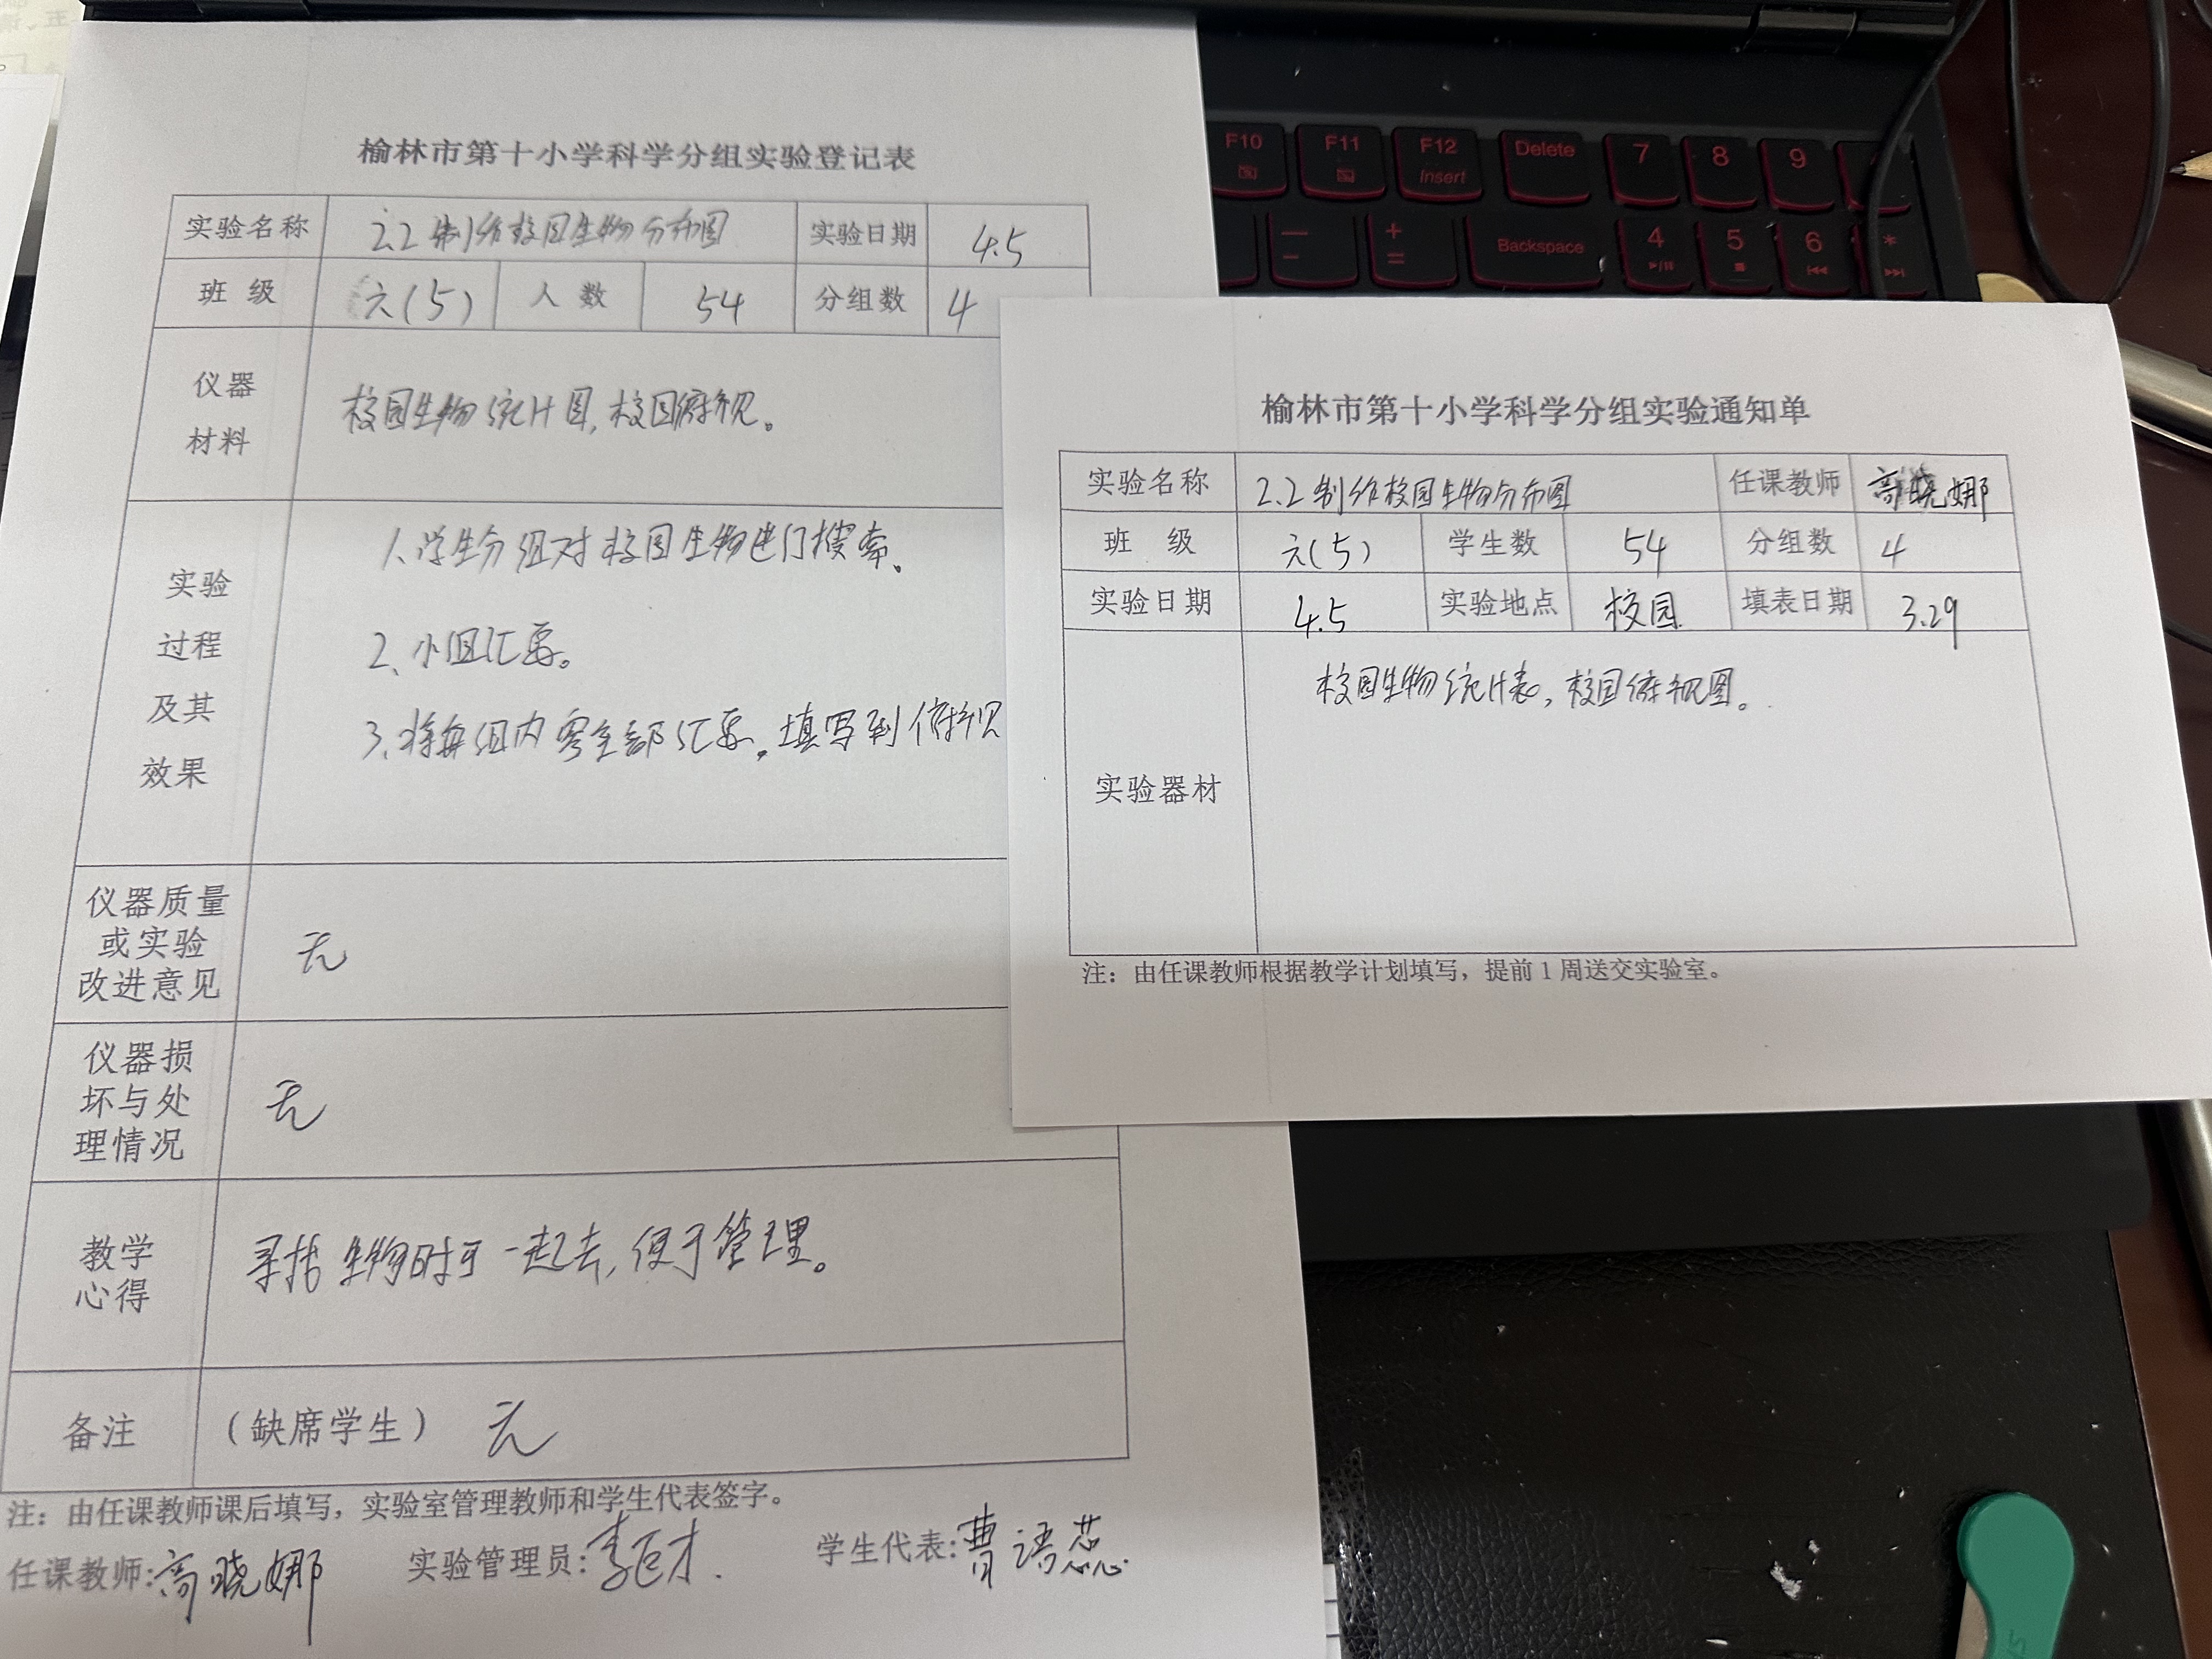 榆林市第十小学科学分组实验登记表
实验名称 2.2 制作校园生物分布图 实验日期 4.5
班 级 六(5) 人 数 54 分组数 4
仪器
材料
校园生物统计图,校园俯视。
实验
过程
及其
效果
1、学生分组对校园生物进行搜索。
2、小组汇总。
3、将每组内容全部汇总。填写到俯视
仪器质量
或实验
改进意见
无
仪器损
坏与处
理情况
无
教学
心得
寻找生物时可一起去,便于管理。
备注 (缺席学生) 无
注:由任课教师课后填写,实验室管理教师和学生代表签字。
任课教师:高晓娜 实验管理员: 学生代表:曹语蕊
榆林市第十小学科学分组实验通知单
实验名称 2.2 制作校园生物分布图 任课教师 高晓娜
班 级 六(5) 学生数 54 分组数 4
实验日期 4.5 实验地点 校园 填表日期 3.29
实验器材
校园生物统计表,校园俯视图。
注:由任课教师根据教学计划填写,提前1周送交实验室。
F10 F11 F12 Delete 7 8 9
Insert
Backspace 4 5 6 *